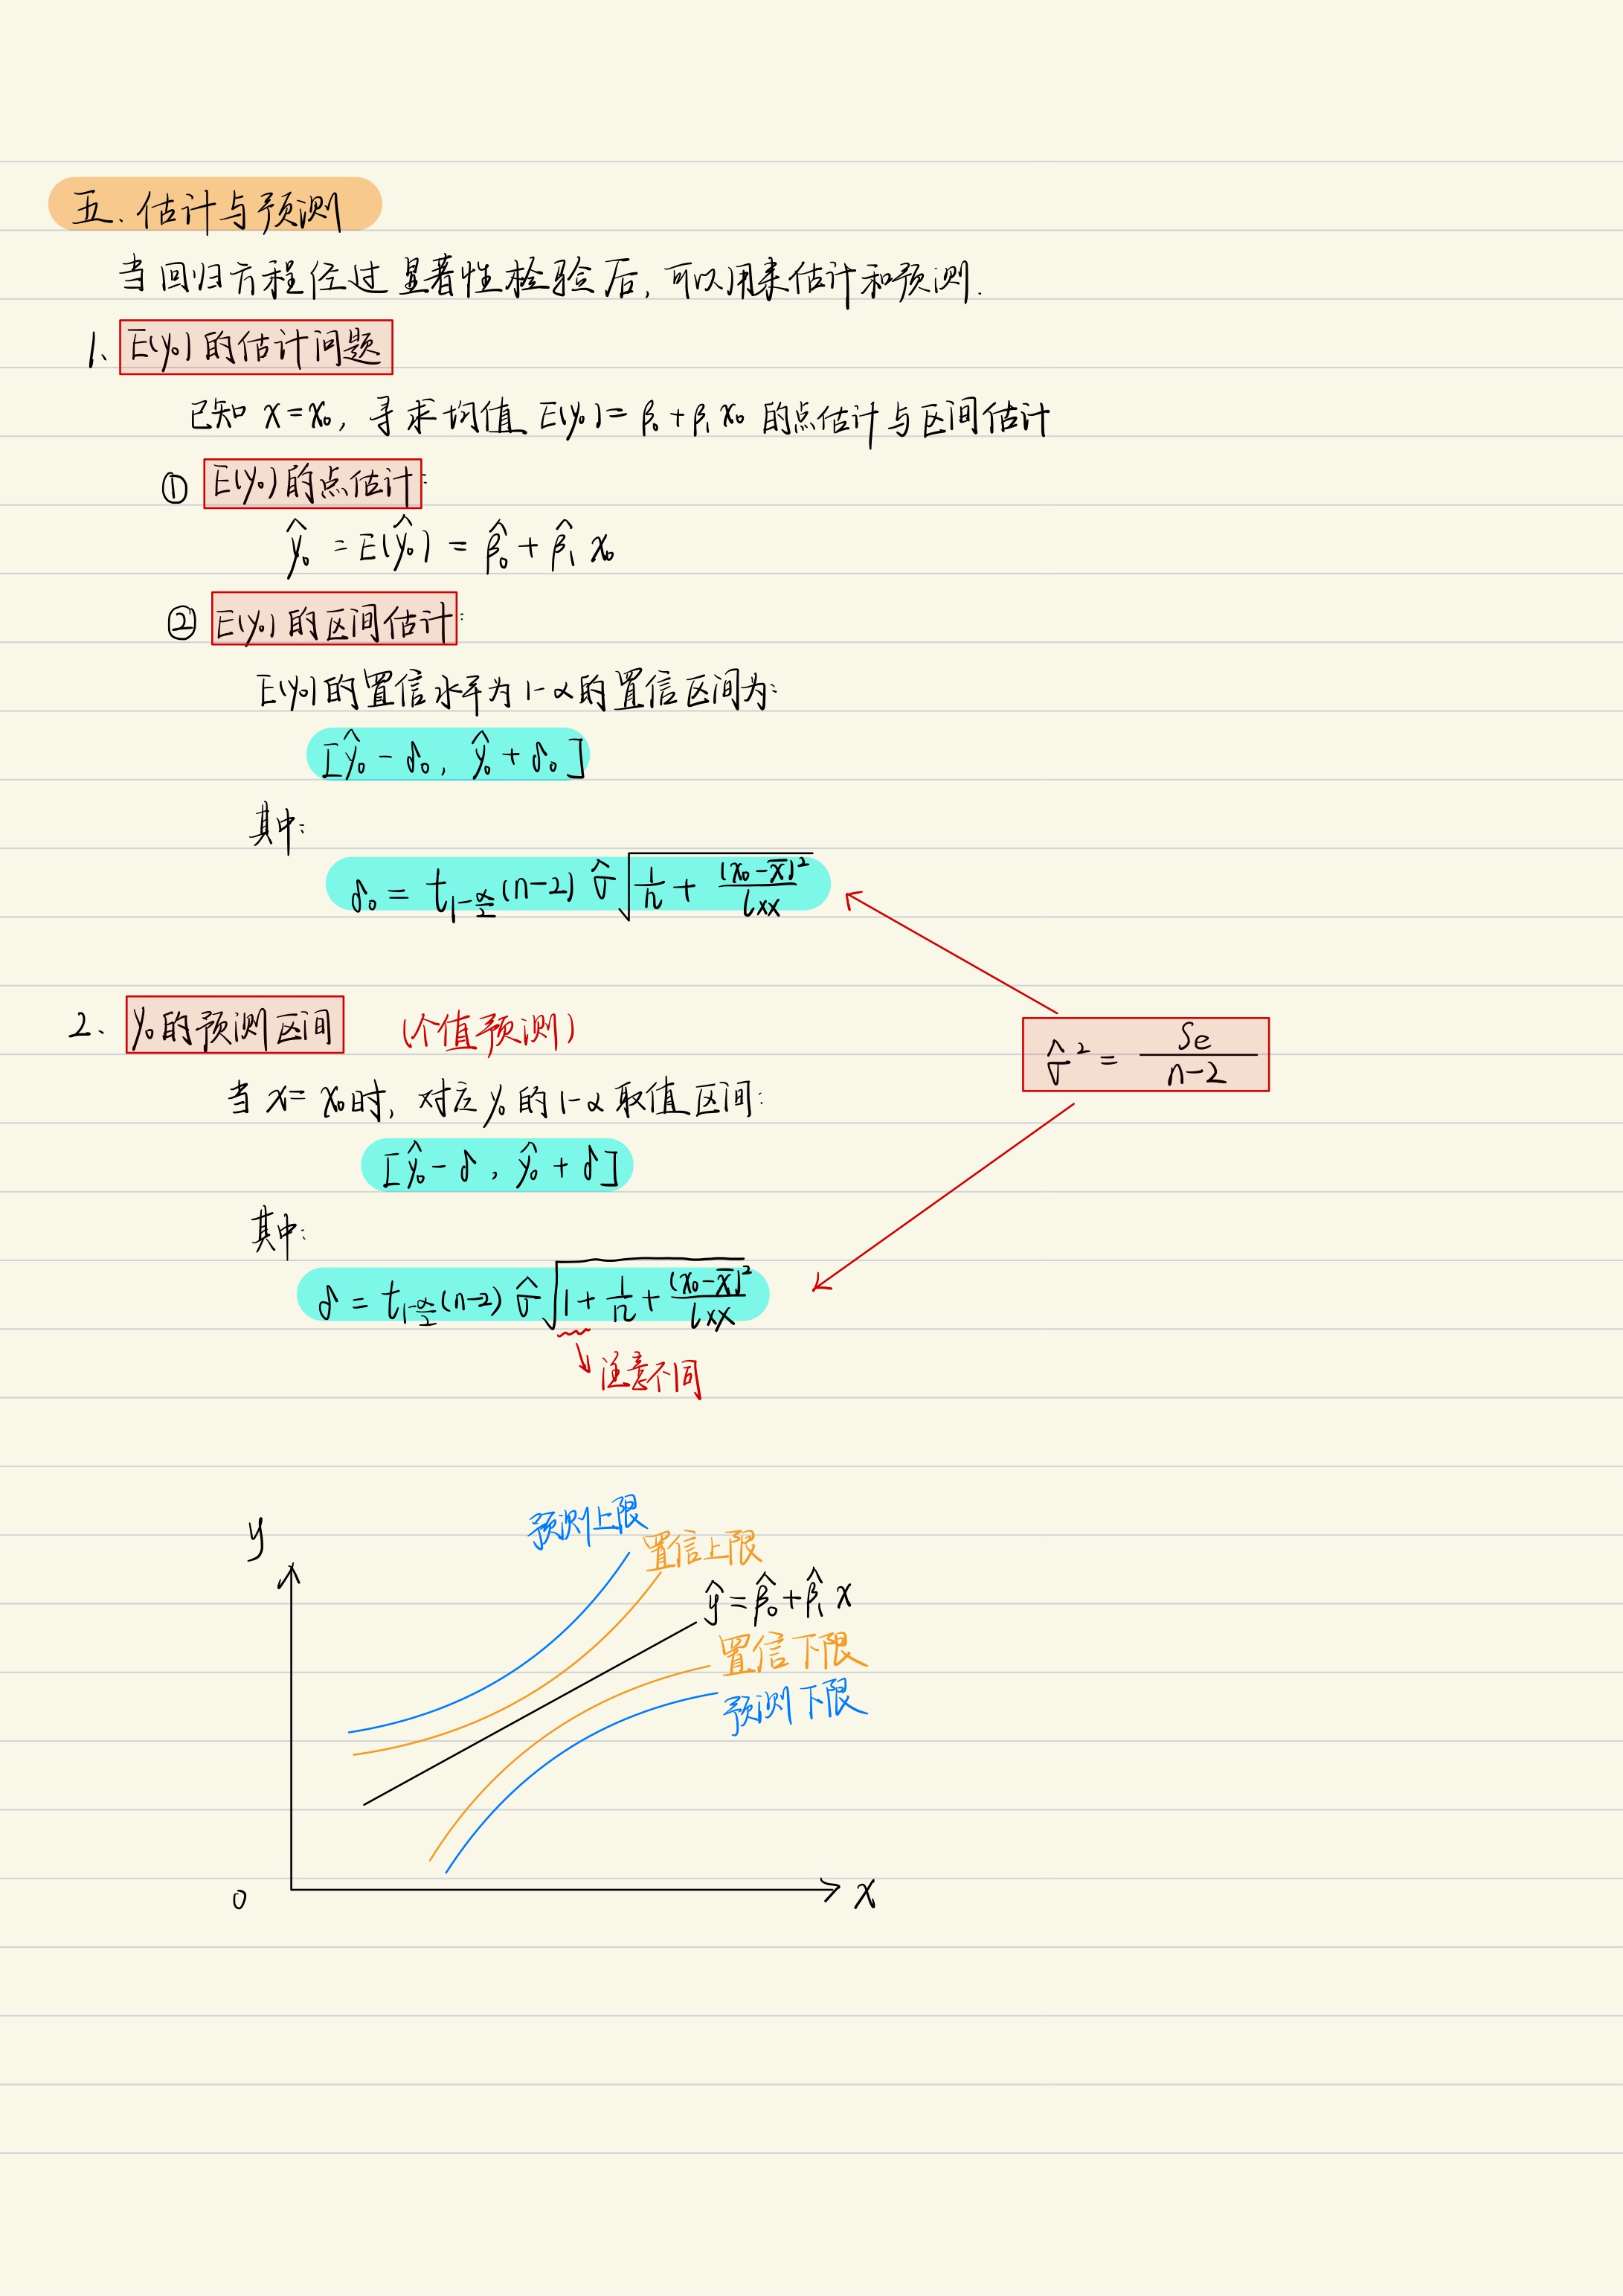 五、估计与预测
当回归方程经过显著性检验后, 可以用来估计和预测.
1、E(y₀)的估计问题
已知 x=x₀, 寻求均值 E(y₀)= β₀+β₁x₀ 的点估计与区间估计
① E(y₀)的点估计:
ŷ₀ = E(ŷ₀) = β̂₀ + β̂₁ x₀
② E(y₀)的区间估计:
E(y₀)的置信水平为1-α的置信区间为:
[ŷ₀ - δ₀, ŷ₀ + δ₀]
其中:
δ₀ = t_{1-α/2}(n-2) σ̂ √(1/n + (x₀-x̄)²/lxx)
2、y₀的预测区间 (个值预测)
σ̂² = Se/(n-2)
当 x=x₀时, 对应 y₀ 的 1-α 取值区间:
[ŷ₀ - δ, ŷ₀ + δ]
其中:
δ = t_{1-α/2}(n-2) σ̂ √(1 + 1/n + (x₀-x̄)²/lxx)
注意不同
预测上限
y
置信上限
ŷ = β̂₀ + β̂₁ x
置信下限
预测下限
0
x